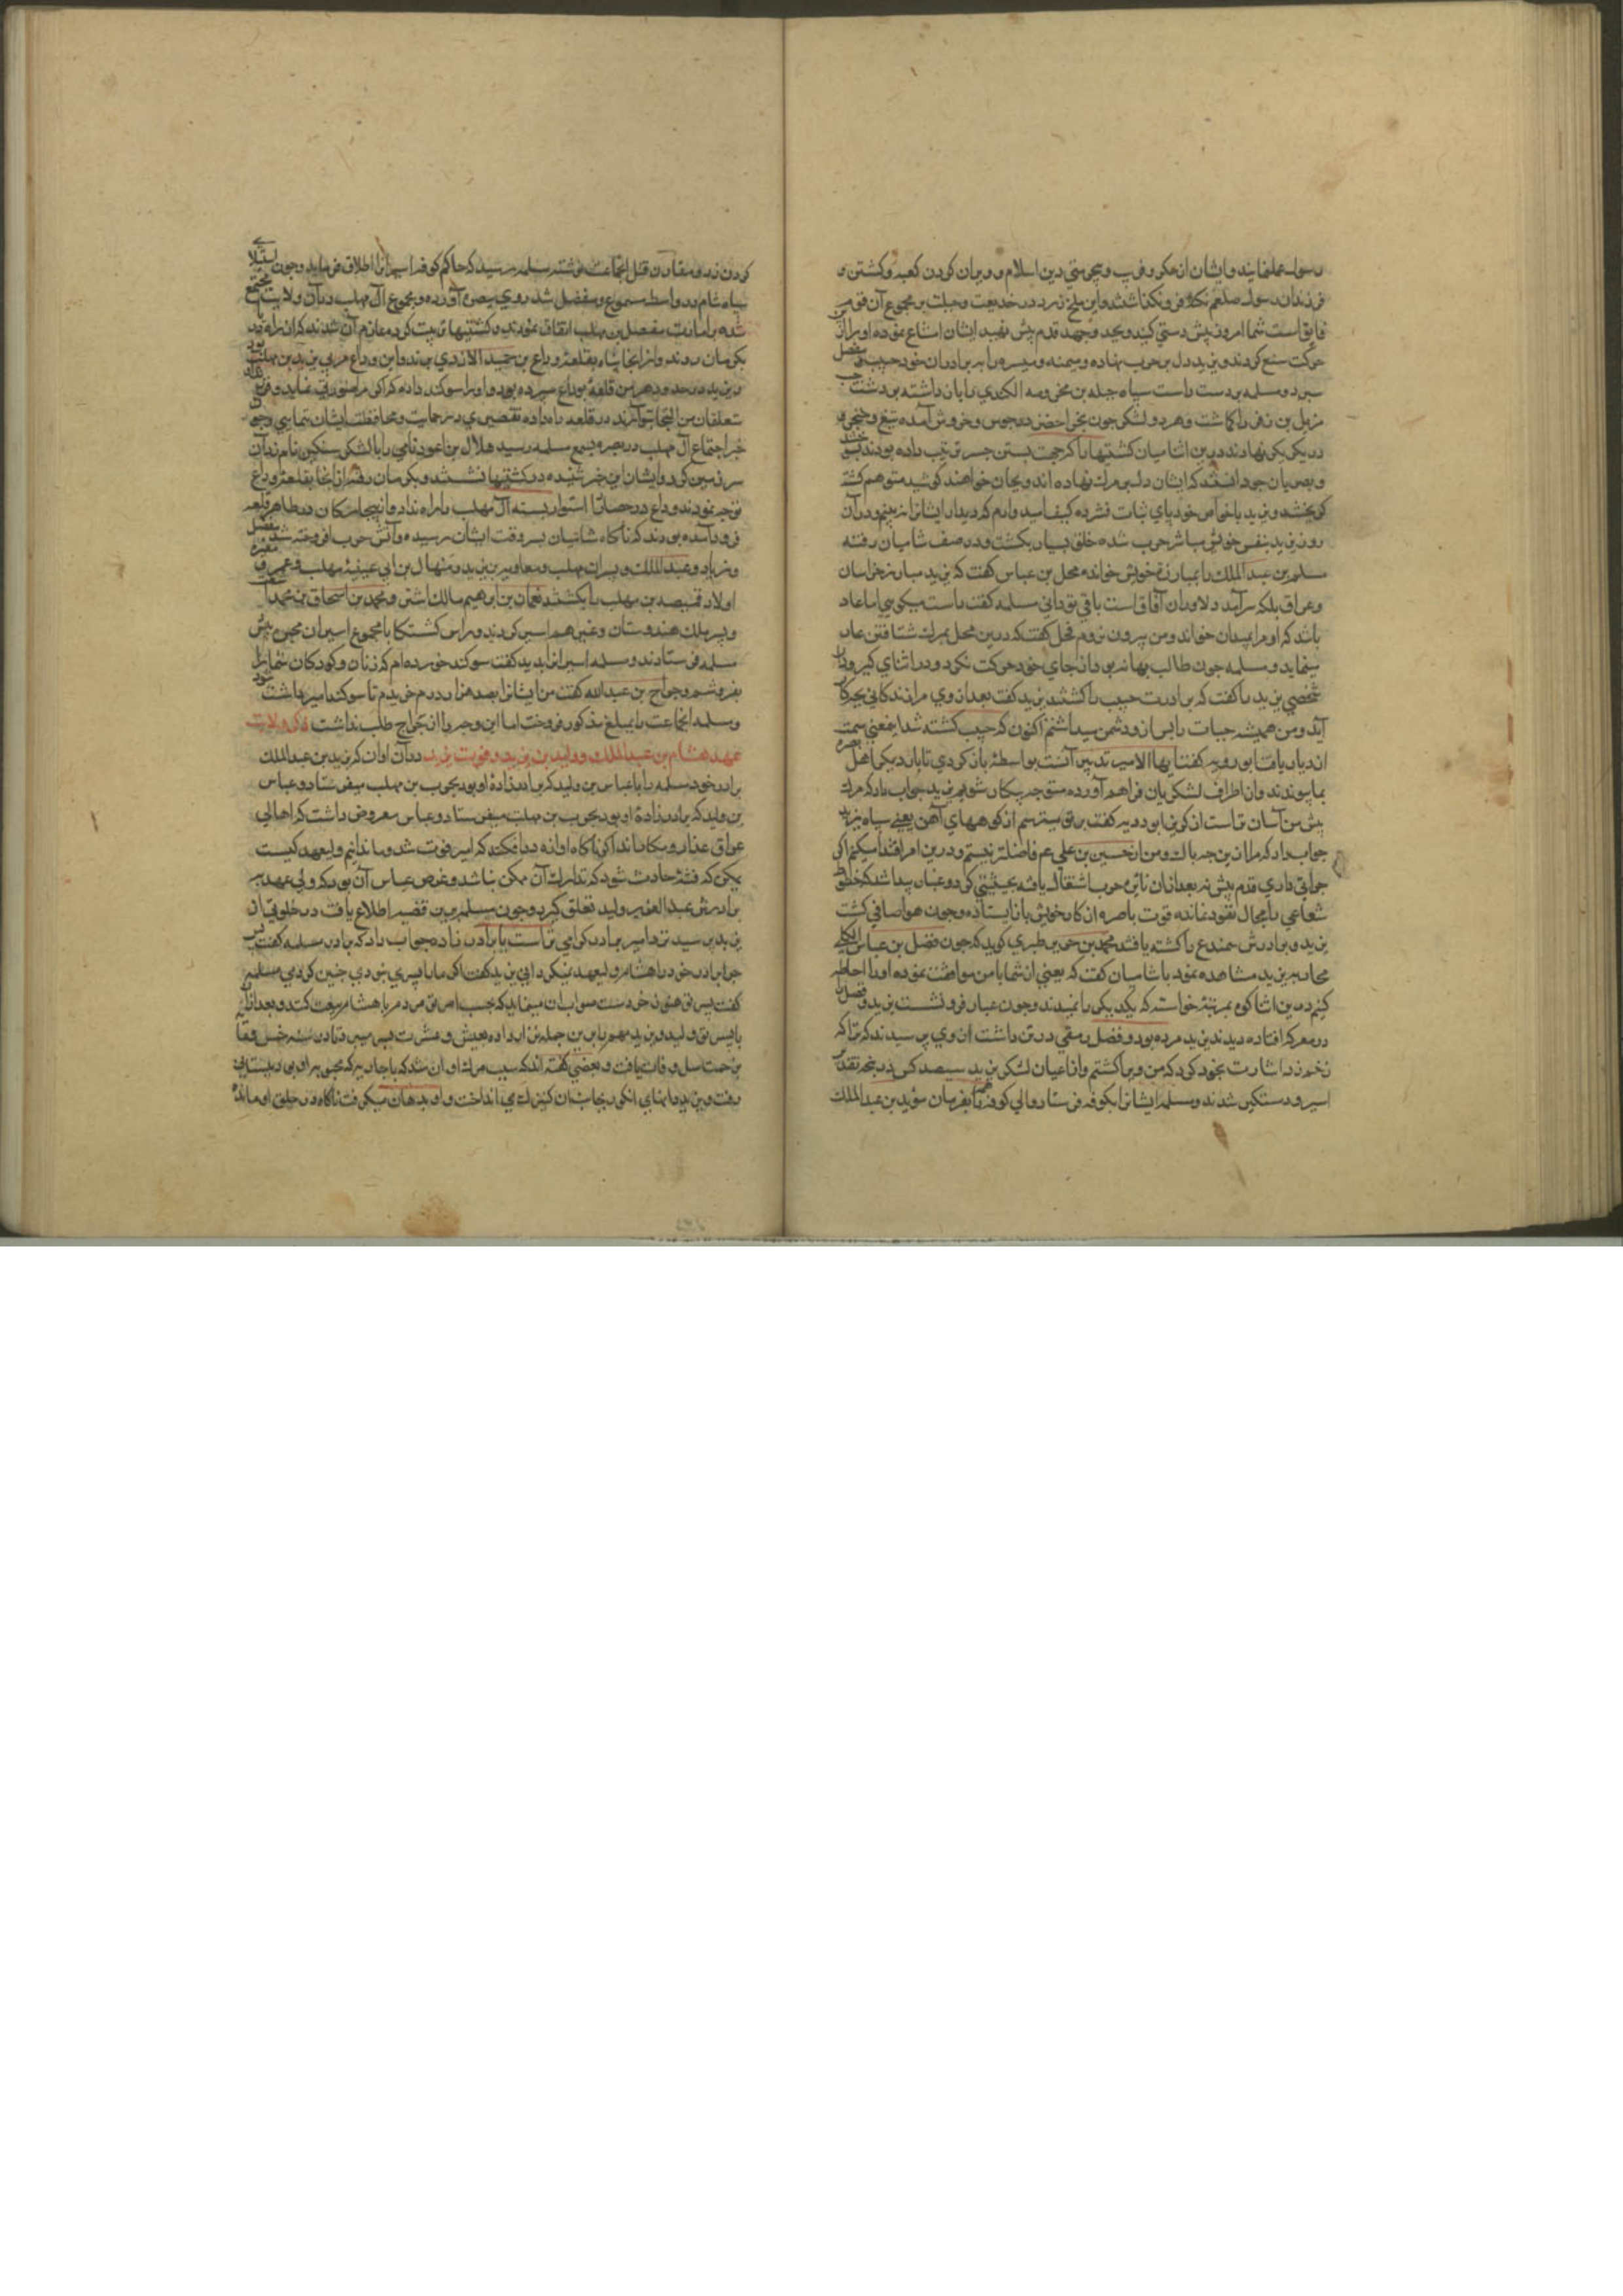 رسول عمل نمایند وایشان از مکر وفریب وبیحرمتی دین اسلام وویران کردن کعبه وکشتن
فرزندان رسول صلعم
فایق است شما امروز پیش دستی کنید وبجد وجهد قدم پیش نهید ایشان امتناع نموده اورا از
حرکت منع کردند ویزید دل بر حرب نهاده ومیمنه ومیسره را به برادران خود حبیب
سپرد ومسلمه بر دست راست سپاه جبله بن مخرمه الکندی را بازداشته بر دست
هذیل بن زفر را کماشت وهر دو لشکر چون بحر اخضر در جوش وخروش آمده تیغ وخنجر
در یکدیکر نهادند درین اثنا میان کشتیها را که جهت بستن جسر ترتیب داده بودند
وبصریان چو دانستند که ایشان دل بر مرک نهاده اند وبجان خواهند کوشید متوهم کشته
بکریختند ویزید با خواص خود پای ثبات فشرده کفت امید وارم که دیدار ایشانرا نه بینم ودر آن
روز یزید بنفس خویش مباشر حرب شده خلق بسیار بکشت ودر صف شامیان رفته
مسلمه بن عبد الملک را بمبارزة خویش خوانده محل بن عباس کفت که یزید مبارز خراسان
وعراق بلکه سرآمد دلاوران آفاق است با وی توانی مسلمه کفت راست میکویی اما عار
باشد که او مرا بمیدان خواند ومن بیرون نروم محل کفت که درین محل بمرک شتافتن عار
مینماید ومسلمه چون طالب بهانه بود از جای خود حرکت نکرد ودر اثنای کیرودار
شخصی یزید را کفت که برادرت حبیب را کشتند یزید کفت بعد از وی مرا زندکانی بچه کار
آید ومن همیشه حیات را پس از ودشمن میداشتم اکنون که حبیب کشته شد
کفت ایها الامیر تدبیر آنست بواسطه باز کردی تا بار دیکر اهل بصره
بما پیوندند واز اطراف لشکریان فراهم آورده متوجه پیکار شویم یزید جواب داد که مرک
پیش من آسان تر است از کریز ابو روبه کفت بر تو میترسم از کوههای آهن یعنی سپاه یزید
جواب داد که مرا ازین چه باک ومن از حسین بن علی عم فاضلتر نیستم ودرین امر اقتدا میکنم اکر
جوابی داری قدم پیش نه بعد از آن نایره حرب اشتعال یافته بحیثیتی کرد وغبار پیدا شد که خطوط
شعاعی را مجال نفوذ نمانده قوت باصره از کار خویش باز ایستاد وچون هوا صافی کشت
یزید وبرادرش محمد را کشته یافتند محمد بن جریر طبری کوید که چون فضل بن عباس الکلبی
محاربه یزید مشاهده نمود با شامیان کفت که یعنی از شما با من موافقت نموده اورا احاطه
کنیم درین اثنا کرد بمرتبه خواست که یکدیکر را ندیدند وچون غبار فرو نشست یزید وفضل را
در معرکه افتاده دیدند یزید مرده بود وفضل رمقی در تن داشت از وی پرسیدند که ترا که
زخم زد اشارت بخود کرد که من ویرا کشتم واز اعیان لشکر یزید سیصد کس در پنجه تقدیر
اسیر ودستکیر شدند ومسلمه ایشانرا بکوفه فرستاد والی کوفه همه را بفرمان یزید بن عبد الملک
کردن زد ومقارن قتل آنجماعت نوشته مسلمه رسید که حاکم کوفه اسیرانرا اطلاق فرماید وچون استیلای
سپاه شام در واسط مسموع مفضل شد روی ببصره آورده ومجموع آل مهلب در آن ولایت مجتمع
شده بر امارت مفضل بن مهلب اتفاق نمودند وکشتیها ترتیب کرده عازم آن شدند که از راه دریا
بکرمان روند واز آنجا پناه بقلعه وداع بن حمید الازدی برند واین وداع مربی یزید بن مهلب بود
ویزید در حدود هرمز قلعه بوداع سپرده بود واورا سوکند داده که اکر مرا ضرورتی نماید
متعلقان من التجا بتو آرند در قلعه راه داده تقصیری در حمایت ومحافظت ایشان ننمایی وچون
خبر اجتماع آل مهلب در بصره بسمع مسلمه رسید هلال بن احوز نامی را با لشکر سنکین نامزد آن
سرزمین کرد وایشان این خبر شنیده در کشتیها نشستند وبکرمان رفته از آنجا بقلعه وداع
توجه نمودند وداع در حصار استوار بسته آل مهلب را راه نداد وآن بیچارکان در ظاهر قلعه
فرود آمده بودند که ناکاه شامیان بسر وقت ایشان رسیده وآتش حرب افروخته شد مفضل
وزیاد وعبد الملک وپسران مهلب ومعاویه بن یزید ومنهال بن ابی عیینه مهلب وعمرو
اولاد قبیصه بن مهلب را بکشتند نعمان بن ابراهیم مالک اشتر ومحمد بن اسحاق بن محمد
وپسر ملک هندوستان وغیرهم اسیر کردند وراس کشتکان با مجموع اسیران مجروح پیش
مسلمه فرستادند ومسلمه اسیرانرا بدید کفت سوکند خورده ام که زنان وکودکان شمارا
بفروشم وجراح بن عبد الله کفت من ایشانرا بصد هزار درم خریدم تا سوکند امیر راست شود
ومسلمه آنجماعت را بمبلغ مذکور فروخت اما این وجه را از جراح طلب نداشت ذکر ولایت
عهد هشام بن عبد الملک وولید بن یزید وفوت یزید در آن اوان که یزید بن عبد الملک
برادر خود مسلمه را با عباس بن ولید که برادرزاده او بود بحرب بن مهلب میفرستاد وعباس
بن ولید که برادرزاده او بود بحرب بن مهلب میفرستاد وعباس معروض داشت که اهالی
عراق غدار ومکارند اکر ناکاه آوازه در افکنند که امیر فوت شد وما ندانیم ولیعهد کیست
یمکن که فتنه حادث شود که تدارک آن ممکن نباشد وغرض عباس آن بود که ولی عهد به
برادرش عبد العزیز ولید تعلق کیرد وچون مسلمه برین قضیه اطلاع یافت در خلوتی از
یزید پرسید نزد امیر برادر کرامی تر است یا برادر زاده جواب داد که برادر مسلمه کفت پس
چرا برادر خود را هشام ولیعهد نمیکردانی یزید کفت اکر مارا پسری نبودی چنین کردمی مسلمه
کفت پسر تو هنوز خردست صواب آن مینماید که حسب امر تو مردم با هشام بیعت کنند وبعد از آن
با پسر تو ولید ویزید مهم را برین جمله قرار داده بعیش وعشرت بسر میبرد تا در سنه خمس ومائه
بزحمت سل وفات یافت وبعضی کفته اند که سبب مرک او آن شد که با حبابه که محبوبه او بود ببستانی
رفت ویزید دانهای انکور بجانب آن کنیز می انداخت واو بدهان میکرفت ناکاه در حلق او مانده